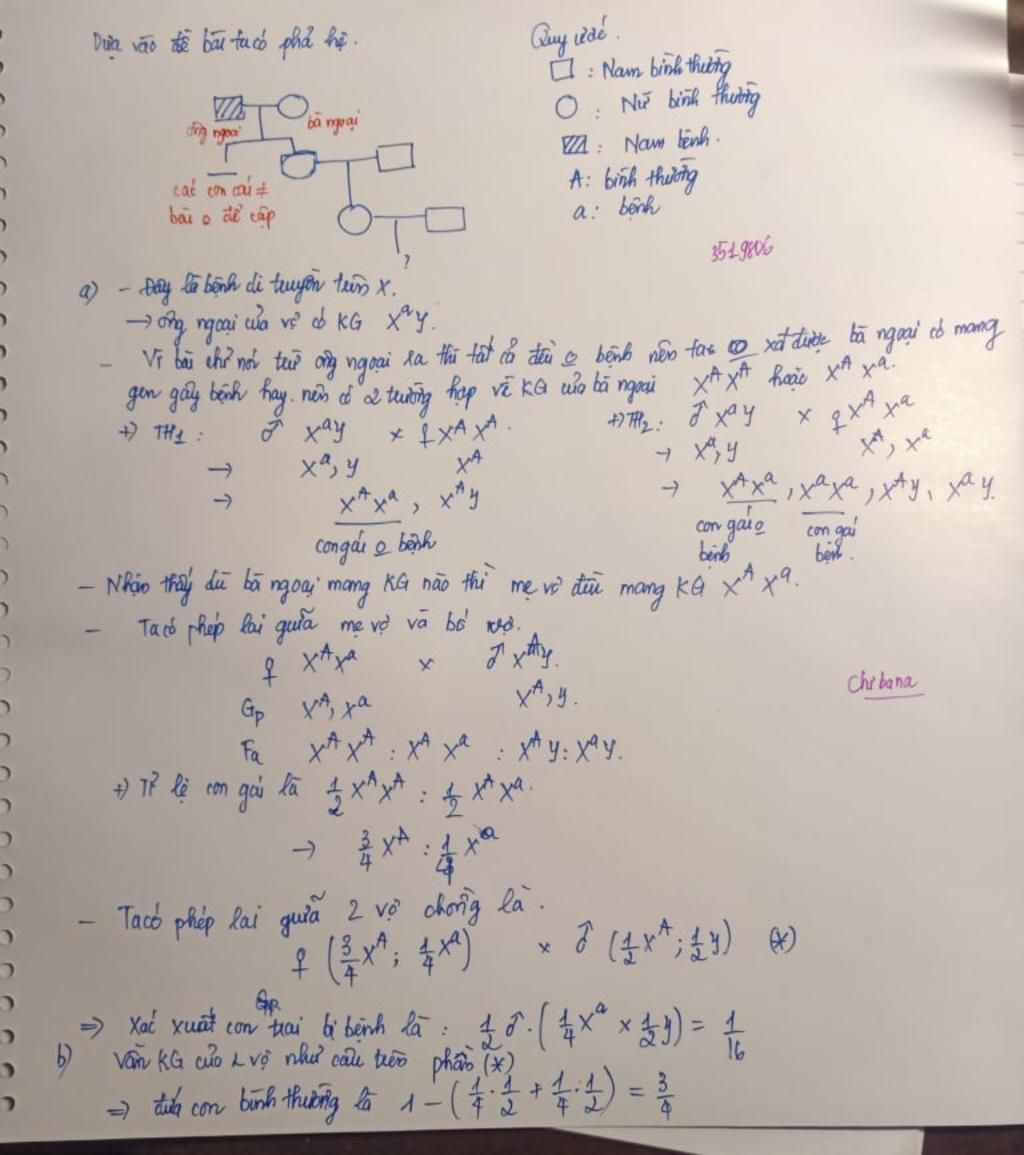 Dựa vào đề bài ta có phả hệ.
ông ngoại
bà ngoại
các con cái ≠
bài o đề cập
?
Quy ước.
□ : Nam bình thường
○ : Nữ bình thường
▨ : Nam bệnh.
A: bình thường
a: bệnh
3519806
a) - Đây là bệnh di truyền trên X.
→ ông ngoại của vợ có KG XᵃY.
- Vì bài chỉ nói trừ ông ngoại ra thì tất cả đều o bệnh nên ta o xđ được bà ngoại có mang
gen gây bệnh hay. nên có 2 trường hợp về KG của bà ngoại Xᴬ Xᴬ hoặc Xᴬ Xᵃ.
+) TH1: ♂ XᵃY × ♀ Xᴬ Xᴬ.
→ Xᵃ, Y Xᴬ
→ Xᴬ Xᵃ, Xᴬ Y
con gái o bệnh
+) TH2: ♂ XᵃY × ♀ Xᴬ Xᵃ
→ Xᵃ, Y Xᴬ, Xᵃ
→ Xᴬ Xᵃ, Xᵃ Xᵃ, Xᴬ Y, Xᵃ Y.
con gái o bệnh
con gái bệnh.
- Nhận thấy dù bà ngoại mang KG nào thì mẹ vợ đều mang KG Xᴬ Xᵃ.
- Ta có phép lai giữa mẹ vợ và bố vợ.
♀ Xᴬ Xᵃ × ♂ Xᴬ Y.
Gp Xᴬ, Xᵃ Xᴬ, Y.
Fa Xᴬ Xᴬ : Xᴬ Xᵃ : Xᴬ Y : Xᵃ Y.
+) Tỉ lệ con gái là 1/2 Xᴬ Xᴬ : 1/2 Xᴬ Xᵃ.
→ 3/4 Xᴬ : 1/4 Xᵃ
Chibana
- Ta có phép lai giữa 2 vợ chồng là.
♀ (3/4 Xᴬ ; 1/4 Xᵃ) × ♂ (1/2 Xᴬ ; 1/2 Y) (*)
⇒ Xác xuất con trai bị bệnh là : 1/2 ♂ . (1/4 Xᵃ × 1/2 Y) = 1/16
b) Vẫn KG của 2 vợ như câu trên phần (*)
⇒ đứa con bình thường là 1 - (1/4 . 1/2 + 1/4 . 1/2) = 3/4